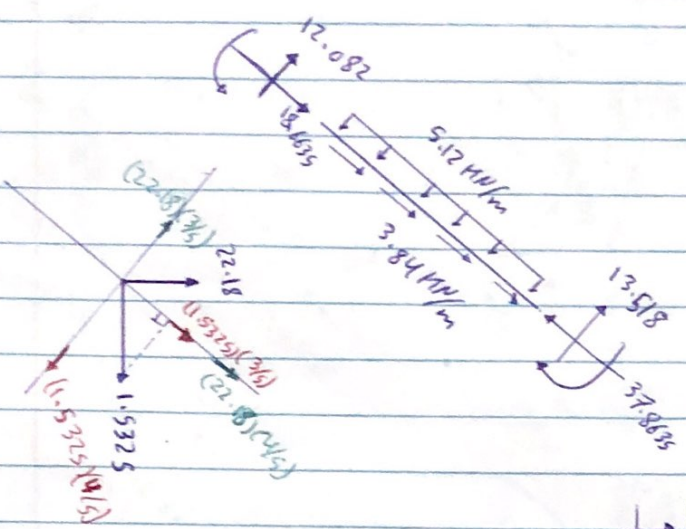 12.082
18.6635
5.12 KN/m
3.84 KN/m
13.518
37.8635
(22.18)(3/5)
22.18
(1.5325)(3/5)
(22.18)(4/5)
1.5325
(1.5325)(4/5)